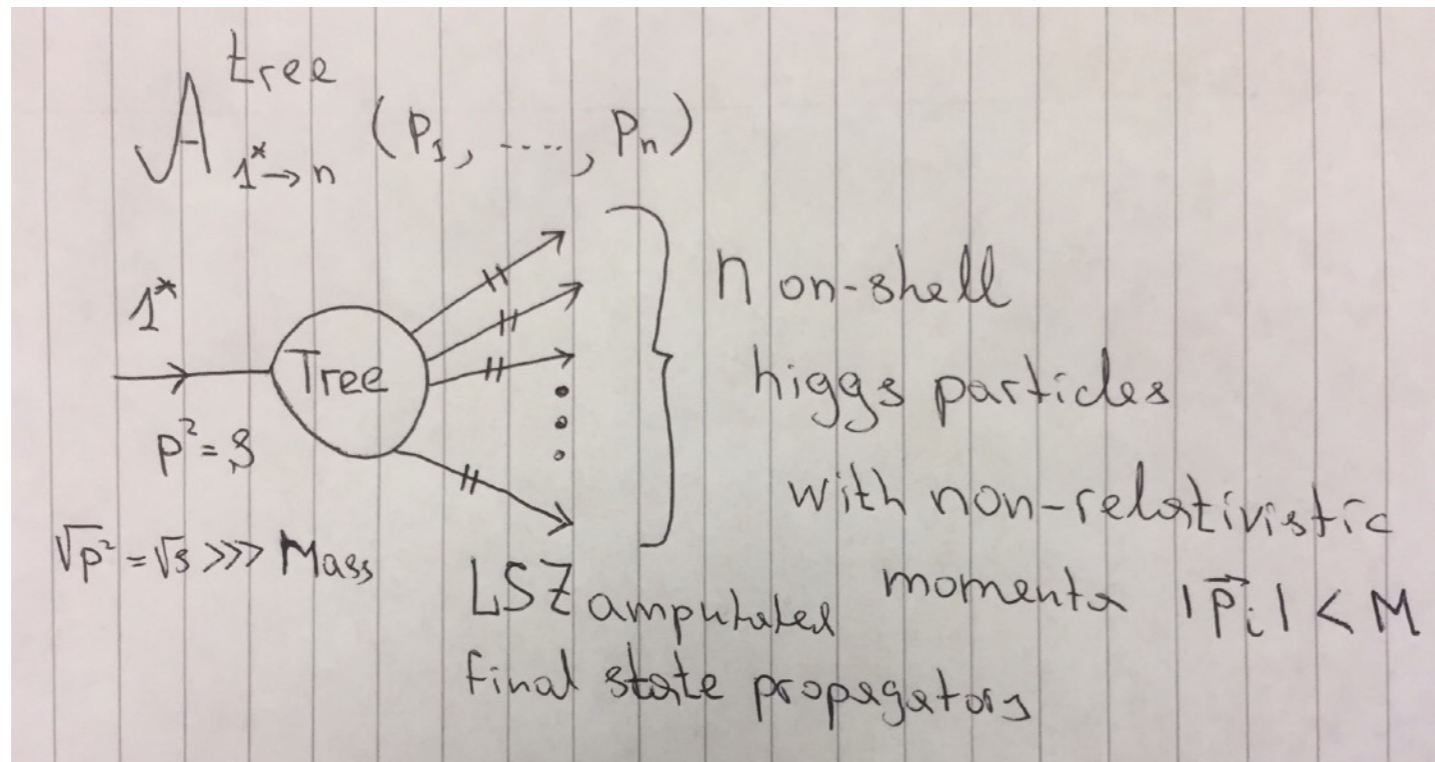 A^tree_1*→n (p_1, ...., p_n)
1*
Tree
p² = s
√p² = √s >>> Mass
n on-shell
higgs particles
with non-relativistic
momenta |p⃗_i| < M
LSZ amputated
final state propagators